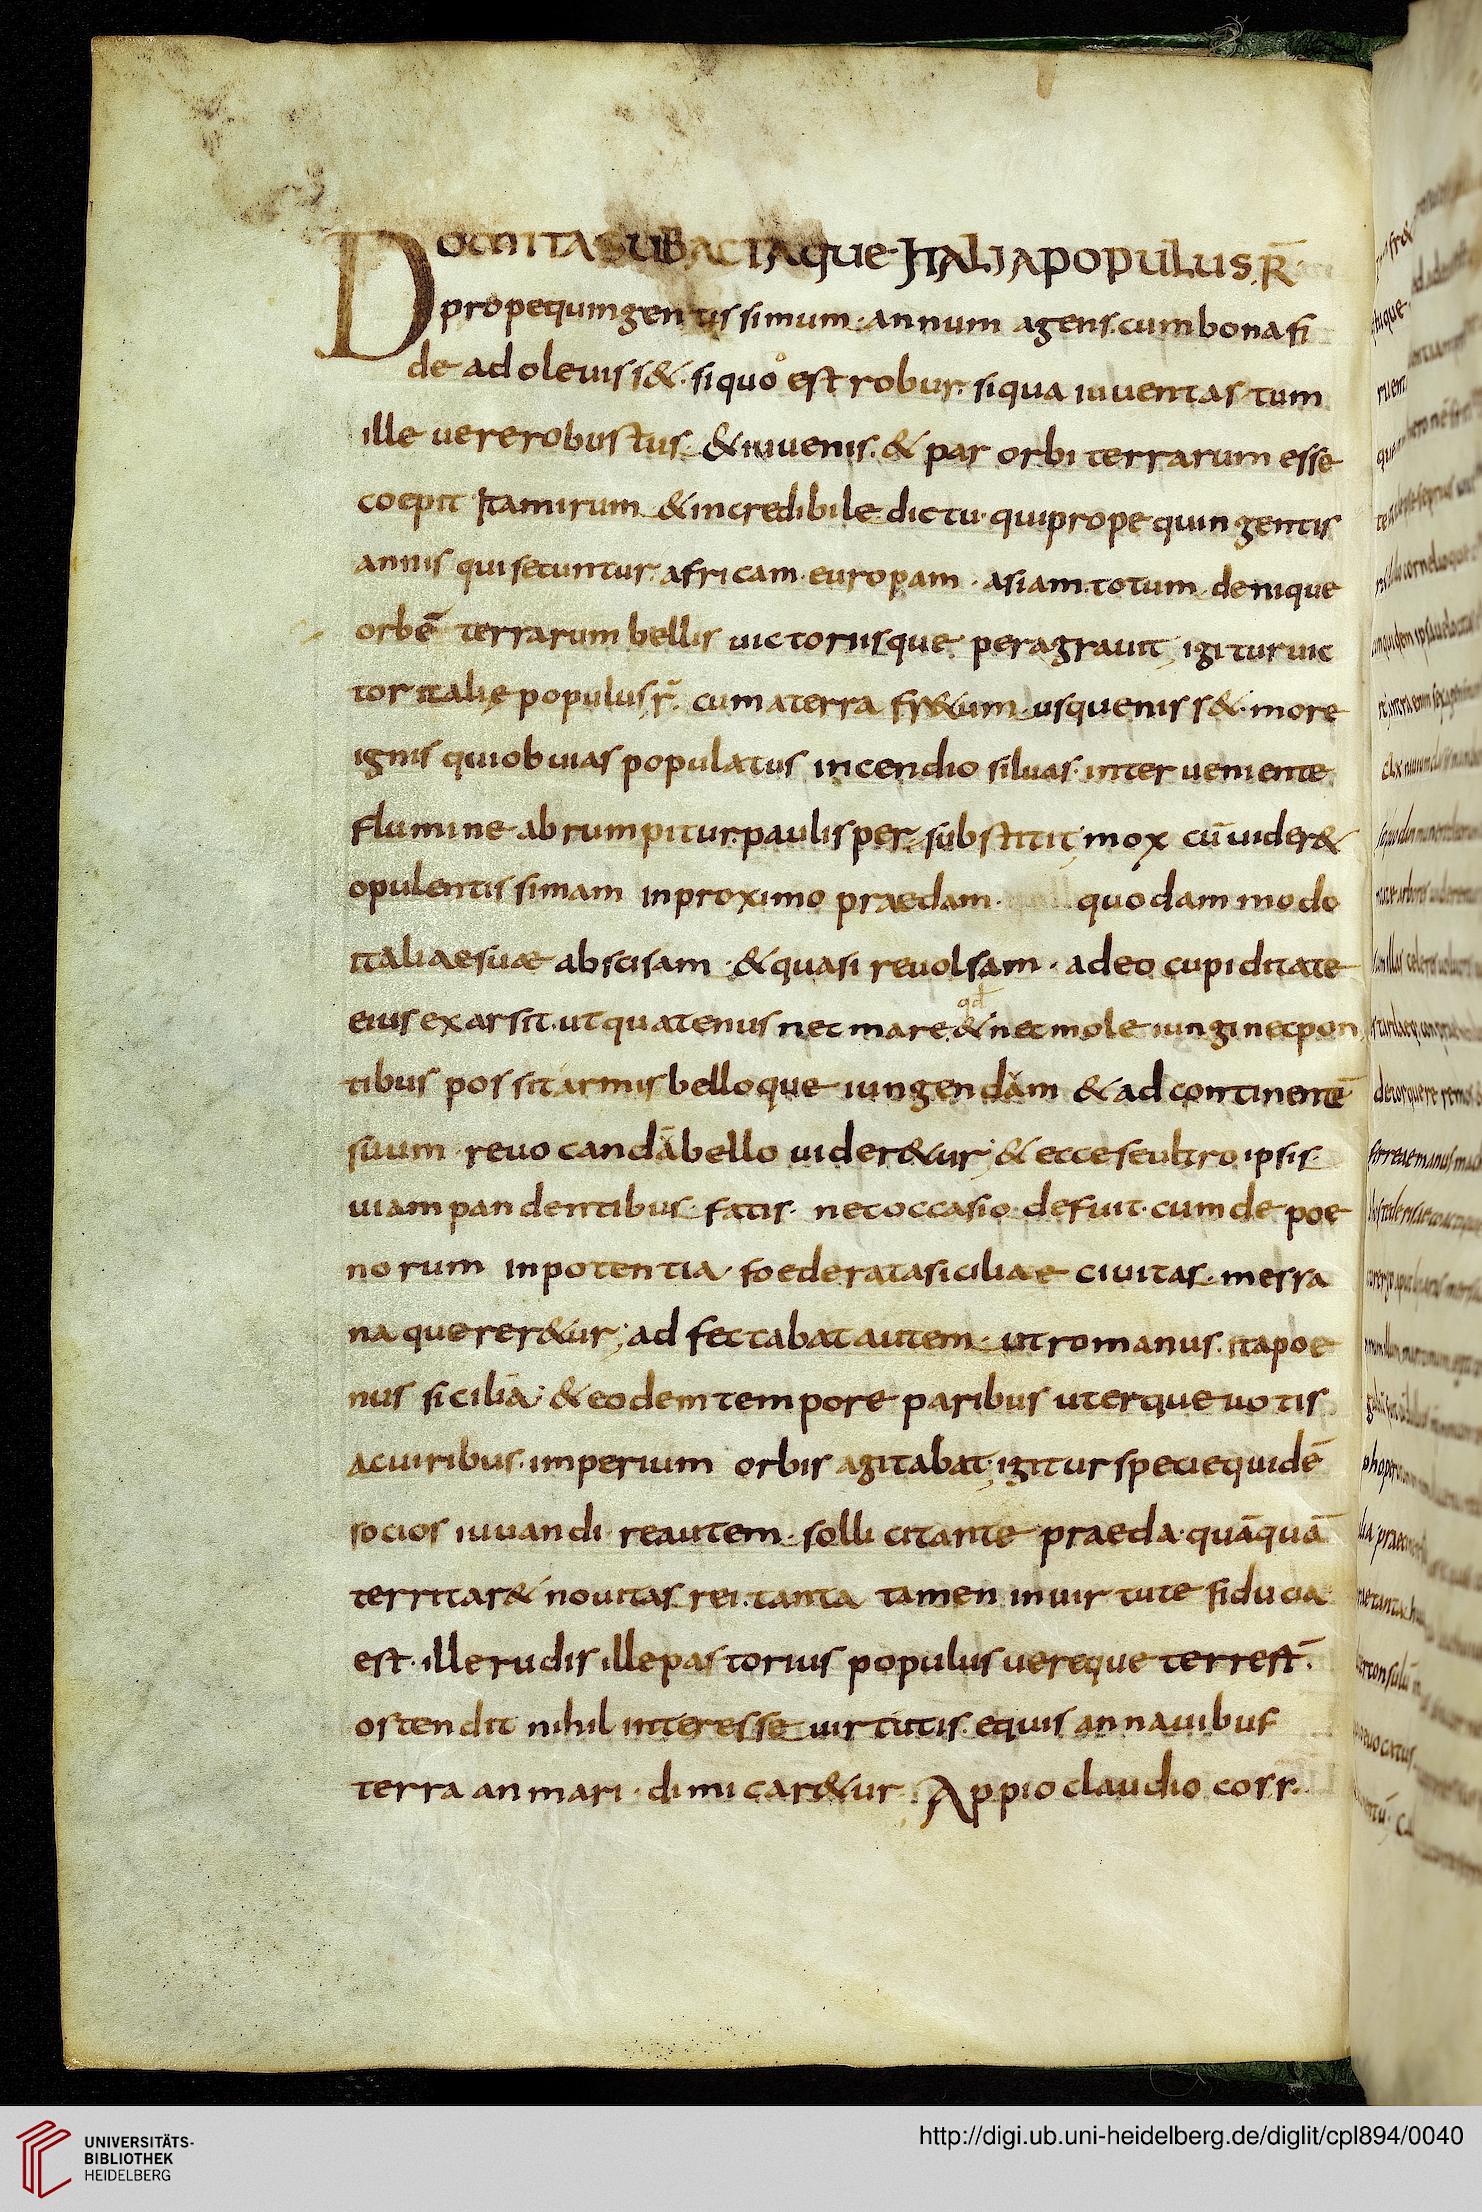 DOMITASUBACTAQUE ITALIA POPULUS R̄
prope quingentissimum annum agens. cum bona fi
de adoleuiss&. si quo est robur. siqua iuuentas tum
ille uere robustus. & iuuenis. & par orbi terrarum esse
coepit Ita mirum & incredibile dictu. qui prope quingentis
annis qui secuntur. africam. europam. asiam. totum denique
orbē terrarum bellis uictoriisque peragrauit, igitur uic
tor italię populus r̄. cum a terra fr&um usque ueniss&. more
ignis qui obuias populatus incendio siluas. interueniente
flumine abrumpitur. paulisper substitit; mox cū uider&
opulentissimam in proximo praedam. quodam modo
italiae suae abscisam. & quasi reuolsam. adeo cupiditate
eius exarsit. ut quatenus nec mare & nec mole iungi nec pon
tibus possit armis belloque iungendam & ad continentē
suum reuocandā bello uider&ur; & ecce se ultro ipsis
uiam pandentibus. fatis. nec occasio defuit. cum de poe
norum inpotentia foederata siciliae ciuitas. messa
na querer&ur; adfectabat autem. ut romanus. ita poe
nus siciliā; & eodem tempore paribus uterque uotis
ac uiribus. imperium orbis agitabat; igitur specie quidē
socios iuuandi re autem. sollicitante praeda. quāquā
territar& nouitas rei. tanta tamen in uirtute fiducia
est. ille rudis ille pastorius populus uereque terrest̄.
ostendit nihil interesse uirtutis. equis an nauibus
terra an mari. dimicar&ur. Appio claudio cors.
UNIVERSITÄTS-
BIBLIOTHEK
HEIDELBERG
http://digi.ub.uni-heidelberg.de/diglit/cpl894/0040